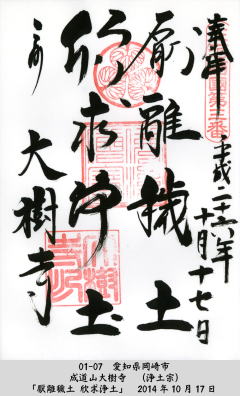 奉拝
平成二十六年
十月十七日
厭離穢土
欣求浄土
三河
大樹寺
01-07 愛知県岡崎市
成道山大樹寺 (浄土宗)
「厭離穢土 欣求浄土」 2014年10月17日